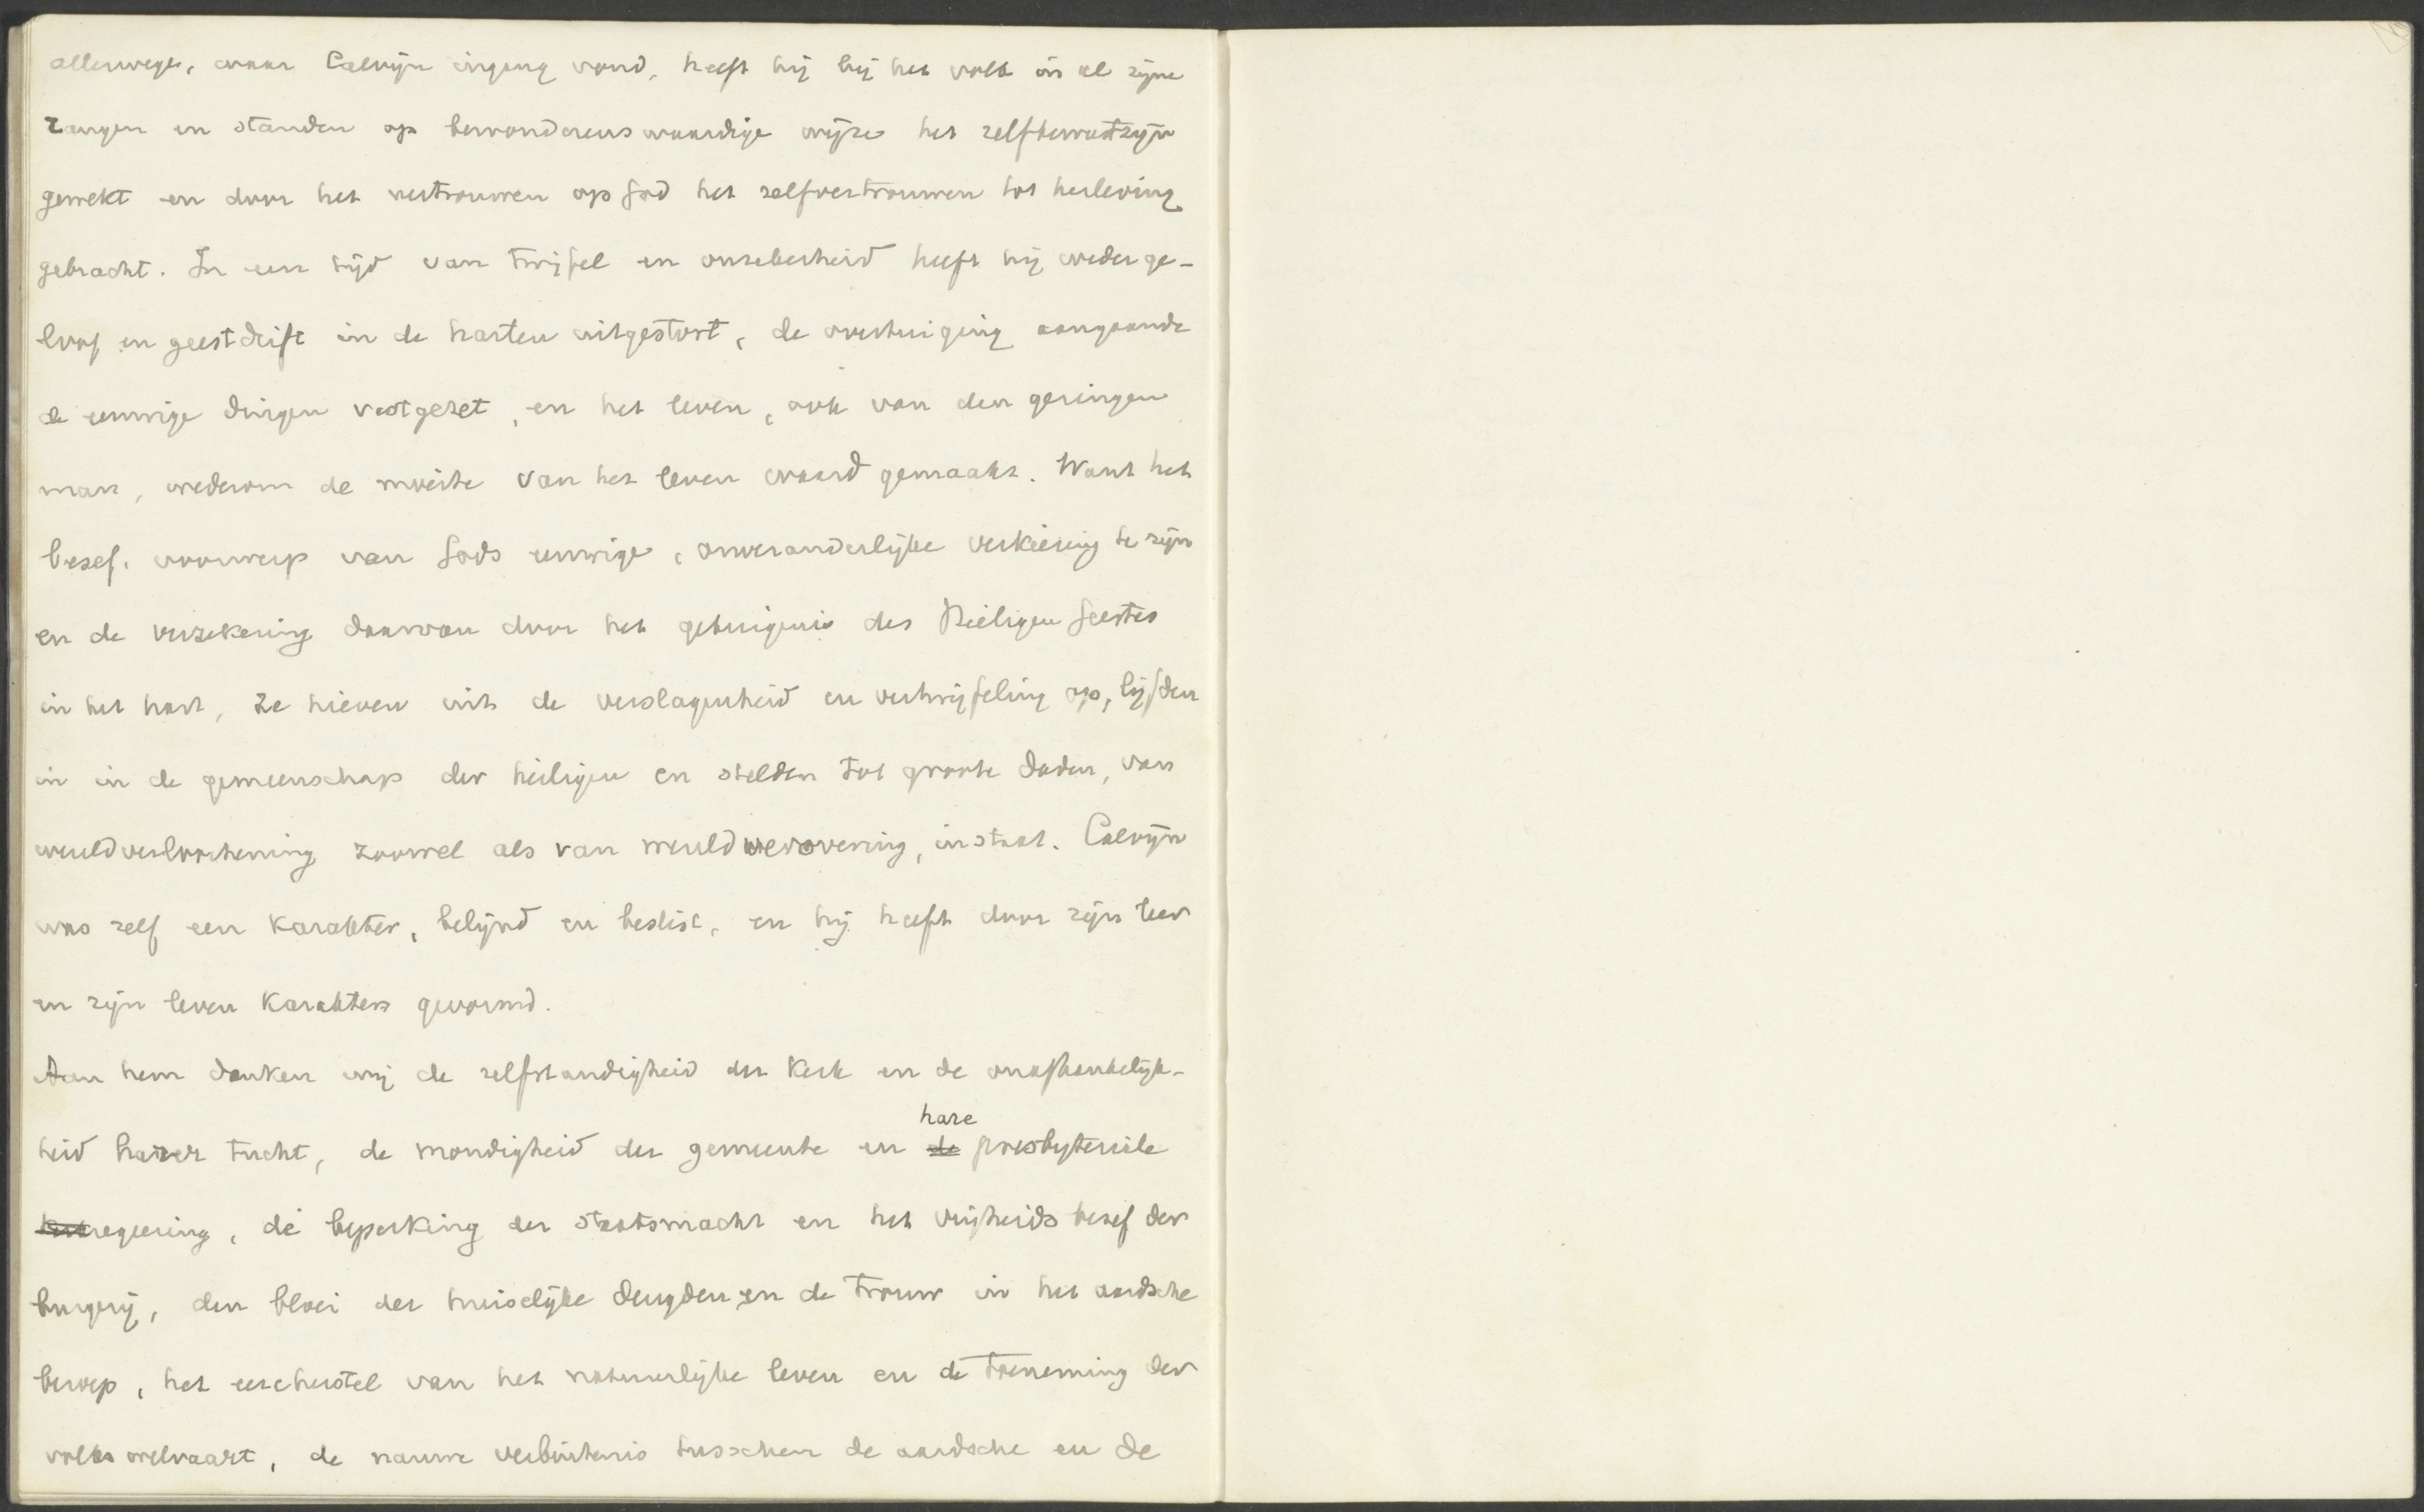 allerwege, waar Calvijn ingang vond, heeft hij bij het volk in al zijne
rangen en standen op bewonderenswaardige wijze het zelfbewustzijn
gewekt en door het vertrouwen op God het zelfvertrouwen tot herleving
gebracht. In een tijd van twijfel en onzekerheid heeft hij weder ge-
loof en geestdrift in de harten uitgestort, de overtuiging aangaande
de eeuwige dingen vastgezet, en het leven, ook van den geringen
man, wederom de moeite van het leven waard gemaakt. Want het
besef, voorwerp van Gods eeuwige, onveranderlijke verkiezing te zijn
en de verzekering daarvan door het getuigenis des Heiligen Geestes
in het hart, ze hieven uit de verslagenheid en vertwijfeling op, lijfden
in in de gemeenschap der heiligen en stelden tot groote daden, van
wereldverloochening zoowel als van wereldverovering, in staat. Calvijn
was zelf een karakter, belijnd en beslist, en hij heeft door zijn leer
en zijn leven karakters gevormd.
Aan hem danken wij de zelfstandigheid der kerk en de onafhankelijk-
heid harer tucht, de mondigheid der gemeente en de hare presbyteriale
regeering, de beperking der staatsmacht en het vrijheidsbesef der
burgerij, den bloei der huiselijke deugden en de trouw in het aardsche
beroep, het eerherstel van het natuurlijke leven en de toeneming der
volkswelvaart, de nauwe verbintenis tusschen de aardsche en de